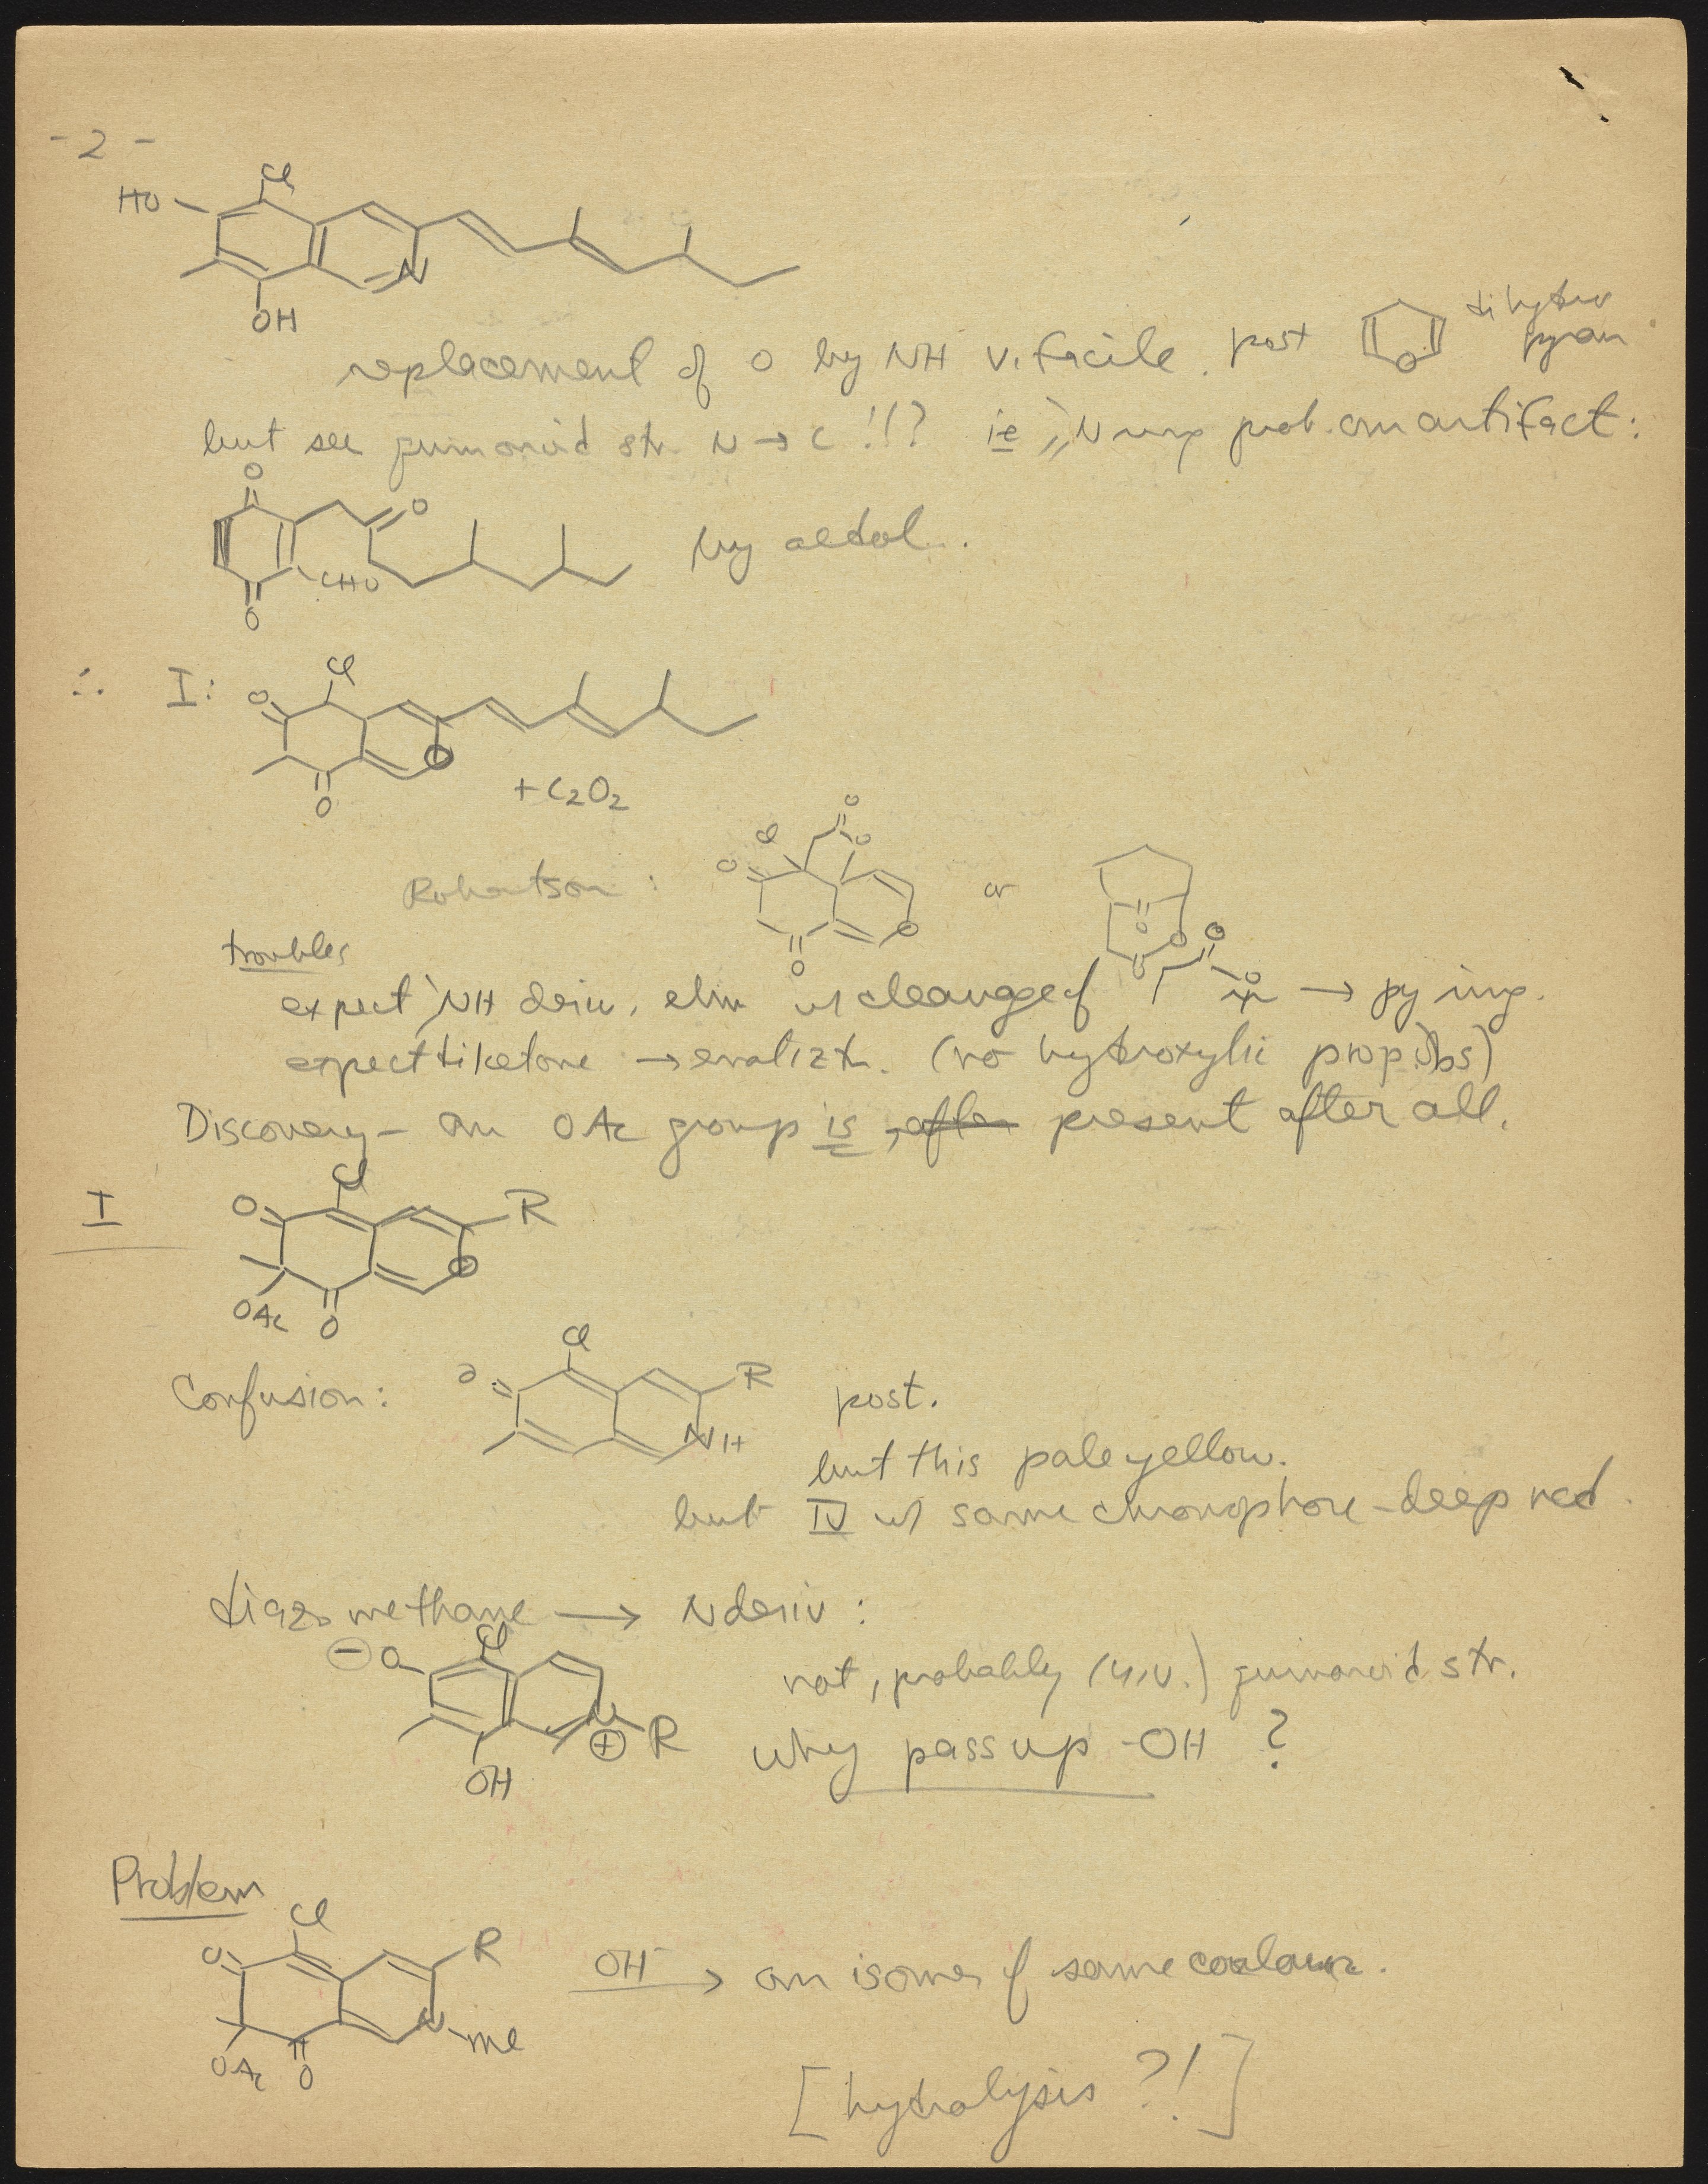 - 2 -
HO
Cl
N
OH
replacement of O by NH v. facile. post O dihydro
pyran
but see quinonoid str. N → C !!? ie >N prob. an artifact:
O
O
CHO
O
by aldol.
∴ I:
Cl
O
O
O
+ C2O2
Robertson:
Cl
O
O
O
O
O
or
O
O
O
O
troubles
expect >NH deriv, elim w/ cleavage of → py ring.
expect diketone → enolizn. (no hydroxylic prop. obs)
Discovery - an OAc group is , after present after all.
I
Cl
O
R
O
OAc
O
Confusion:
Cl
O
R
NH
post.
but this pale yellow.
but IV w/ same chromophore - deep red.
diazomethane → N deriv:
⊖ O
Cl
N
⊕ R
OH
not, probably (u.v.) quinonoid str.
why pass up -OH ?
Problem
Cl
O
R
N-Me
OAc
O
OH- → an isomer of same colour.
[hydrolysis ?!]